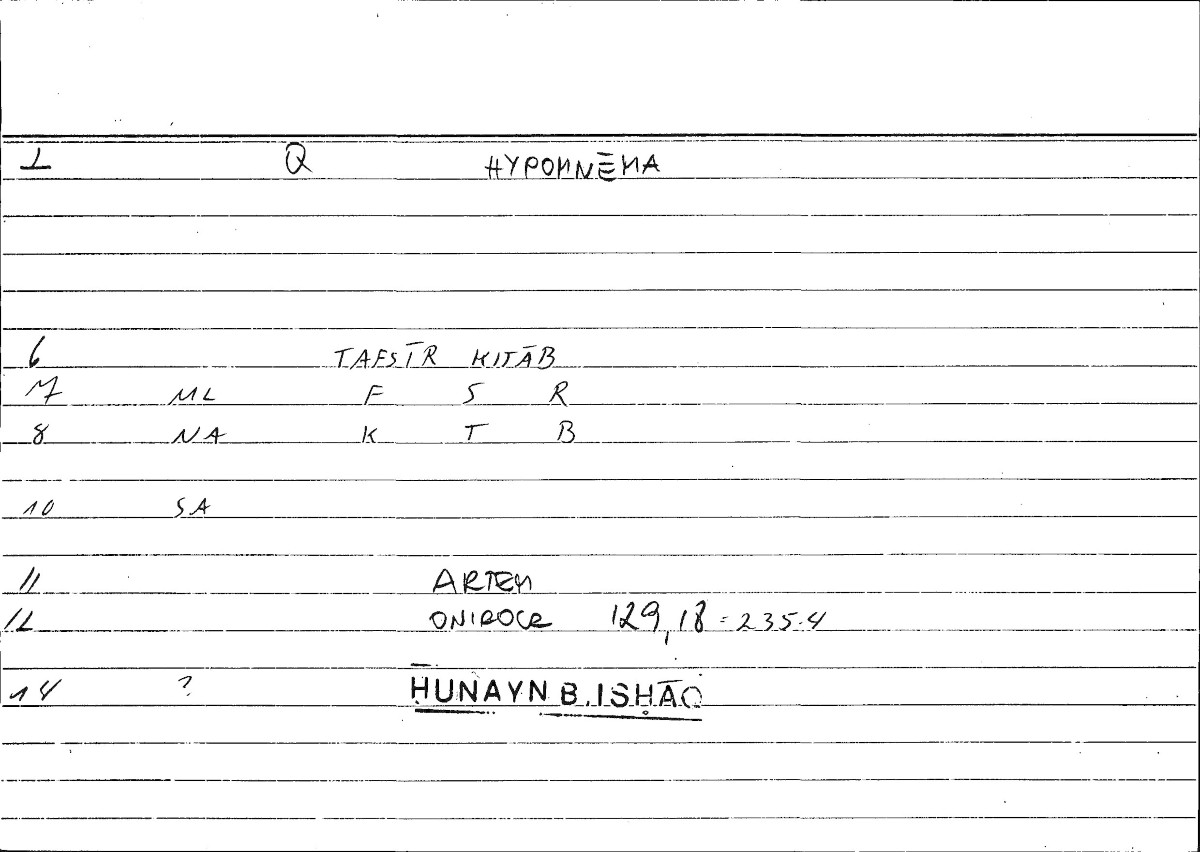 1 Q HYPOMNĒMA
6 TAFSĪR KITĀB
7 ML F S R
8 NA K T B
10 SA
11 ARTEM
12 ONIROCR 129,18 = 235.4
14 ? ḤUNAYN B. ISḤĀQ